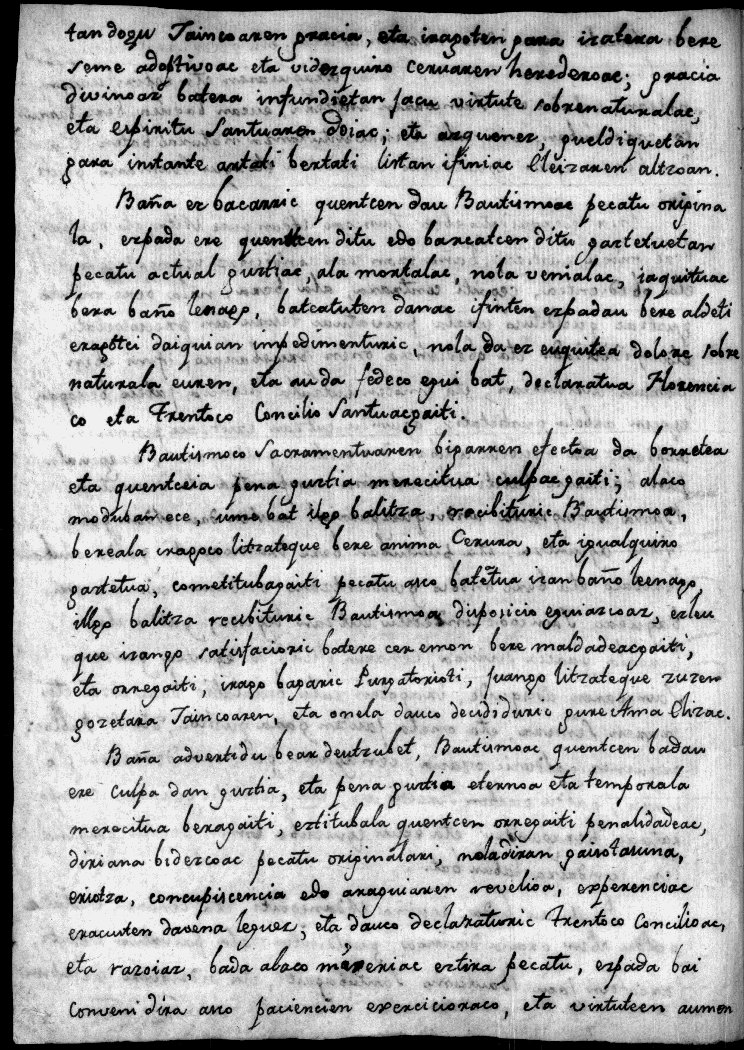 tan dogu Taincoaren gracia, eta iragoten gara izatera bere
seme adoptivoac eta videzquiro ceruaren herederoac; gracia
divinoaz batera infundietan jacu virtute sobrenaturalac,
eta Espiritu Santuaren doiac; eta azquenez, gueldiquetan
gara instante artati bertati listan ifiniac Eleizaren altzoan.
Baña ez bacarric quentcen dau Bautismoac pecatu origina
la, ezpada ere quentcen ditu edo barcatcen ditu gaztetuetan
pecatu actual guztiac, ala mortalac, nola venialac, iaquituac
bera baño lenago, batcatuten danac ifinten ezpadau bere aldeti
eragotci daiquian impedimenturic, nola da ez euquitea dolore sobre
naturala euren, eta au da fedeco egui bat, declaratua Florencia
co eta Trentoco Concilio Santuacgaiti.
Bautismoco Sacramentuaren bigarren efectoa da borretea
eta quentceia pena guztia merecitua culpacgaiti; alaco
moduban ece, ume bat ilgo balitza, recibituric Bautismoa,
bereala iragoco litzateque bere anima Cerura, eta igualquiro
gaztetua, cometitubagaiti pecatu asco bateetua izan baño leenago,
illgo balitza recibituric Bautismoa disposicio eguiazcoaz, ezleu
que izango satisfacioric batere cer emon bere maldadeacgaiti,
eta orregaiti, irago bagaric Purgatorioti, juango litzateque zuzen
gozetara Taincoaren, eta onela dauco decididuric gure Ama Elizac.
Baña advertidu bear deutzubet, Bautismoac quentcen badau
ere culpa dan guztia, eta pena guztia eternoa eta temporala
merecitua beragaiti, eztitubala quentcen orregaiti penalidadeac,
diriana bidezcoac pecatu originalari, noladiran gaisotasuna,
eriotza, concupiscencia edo araguiaren revelioa, experenciac
eracusten dabena leguez, eta dauco declaraturic Trentoco Concilioac,
eta razoiaz, bada alaco miseriac eztira pecatu, ezpada bai
conveni dira asco paciencien exercicioraco, eta virtuteen aumen